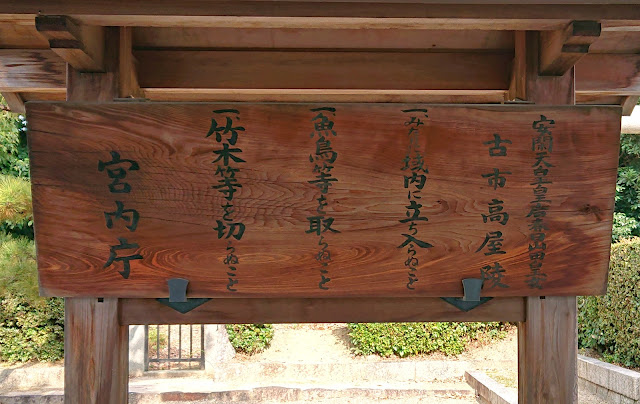 安閑天皇皇后春日山田皇女
古市高屋陵
一、みだりに域内に立ち入らぬこと
一、魚鳥等を取らぬこと
一、竹木等を切らぬこと
宮内庁